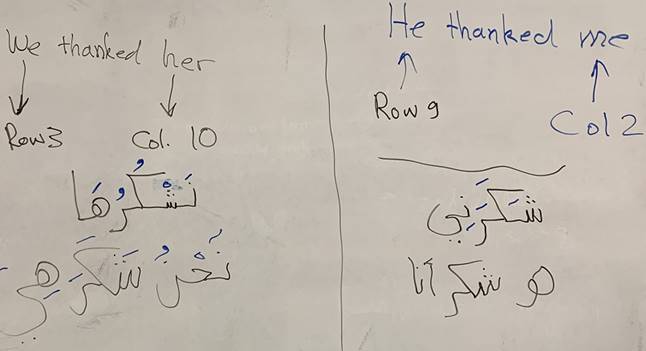 We thanked her
Row3 Col. 10
نَشْكُرُهَا
نَحْنُ شَكَرَ هِيَ
He thanked me
Row 9
Col 2
شَكَرَنِي
هو شكر أنا